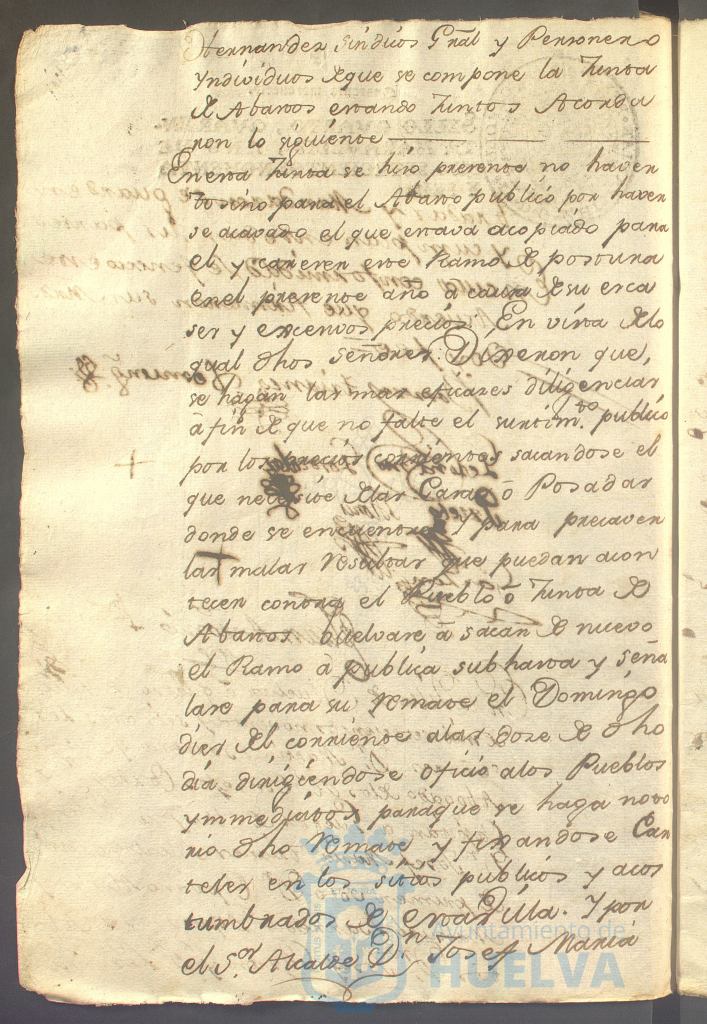 Hernandez, sindicos Gral y Personero
Yndividuos de que se compone la Junta
de Abastos estando Juntos Acorda
ron lo siguiente
En esta Junta se hizo presente no haver
tosino para el Abasto publico por haver
se acavado el que estava acopiado para
el y carecer este Ramo de postura
en el presente año a causa de su esca
sez y excesivos precios. En vista de lo
qual dhos señores: Dixeron que,
se hagan las mas eficazes diligencias
a fin de que no falte el surtimto. publico
por los precios corrientes sacandose el
que necesite de las Casas o Posadas
donde se encuentre. Y para precaver
las malas resultas que puedan acon
tecer contra el Pueblo o Junta de
Abastos buelvase a sacar de nuevo
el Ramo a publica subhasta y seña
lase para su remate el Domingo
diez del corriente a las doze de dho
dia dirigiendose oficio a los Pueblos
ynmediatos para que se haga noto
rio dho remate y fixandose Car
teles en los sitios publicos y acos
tumbrados de esta Villa. Y por
el Sor. Alcalde Dn. Josef Maria
Ayuntamiento de
HUELVA